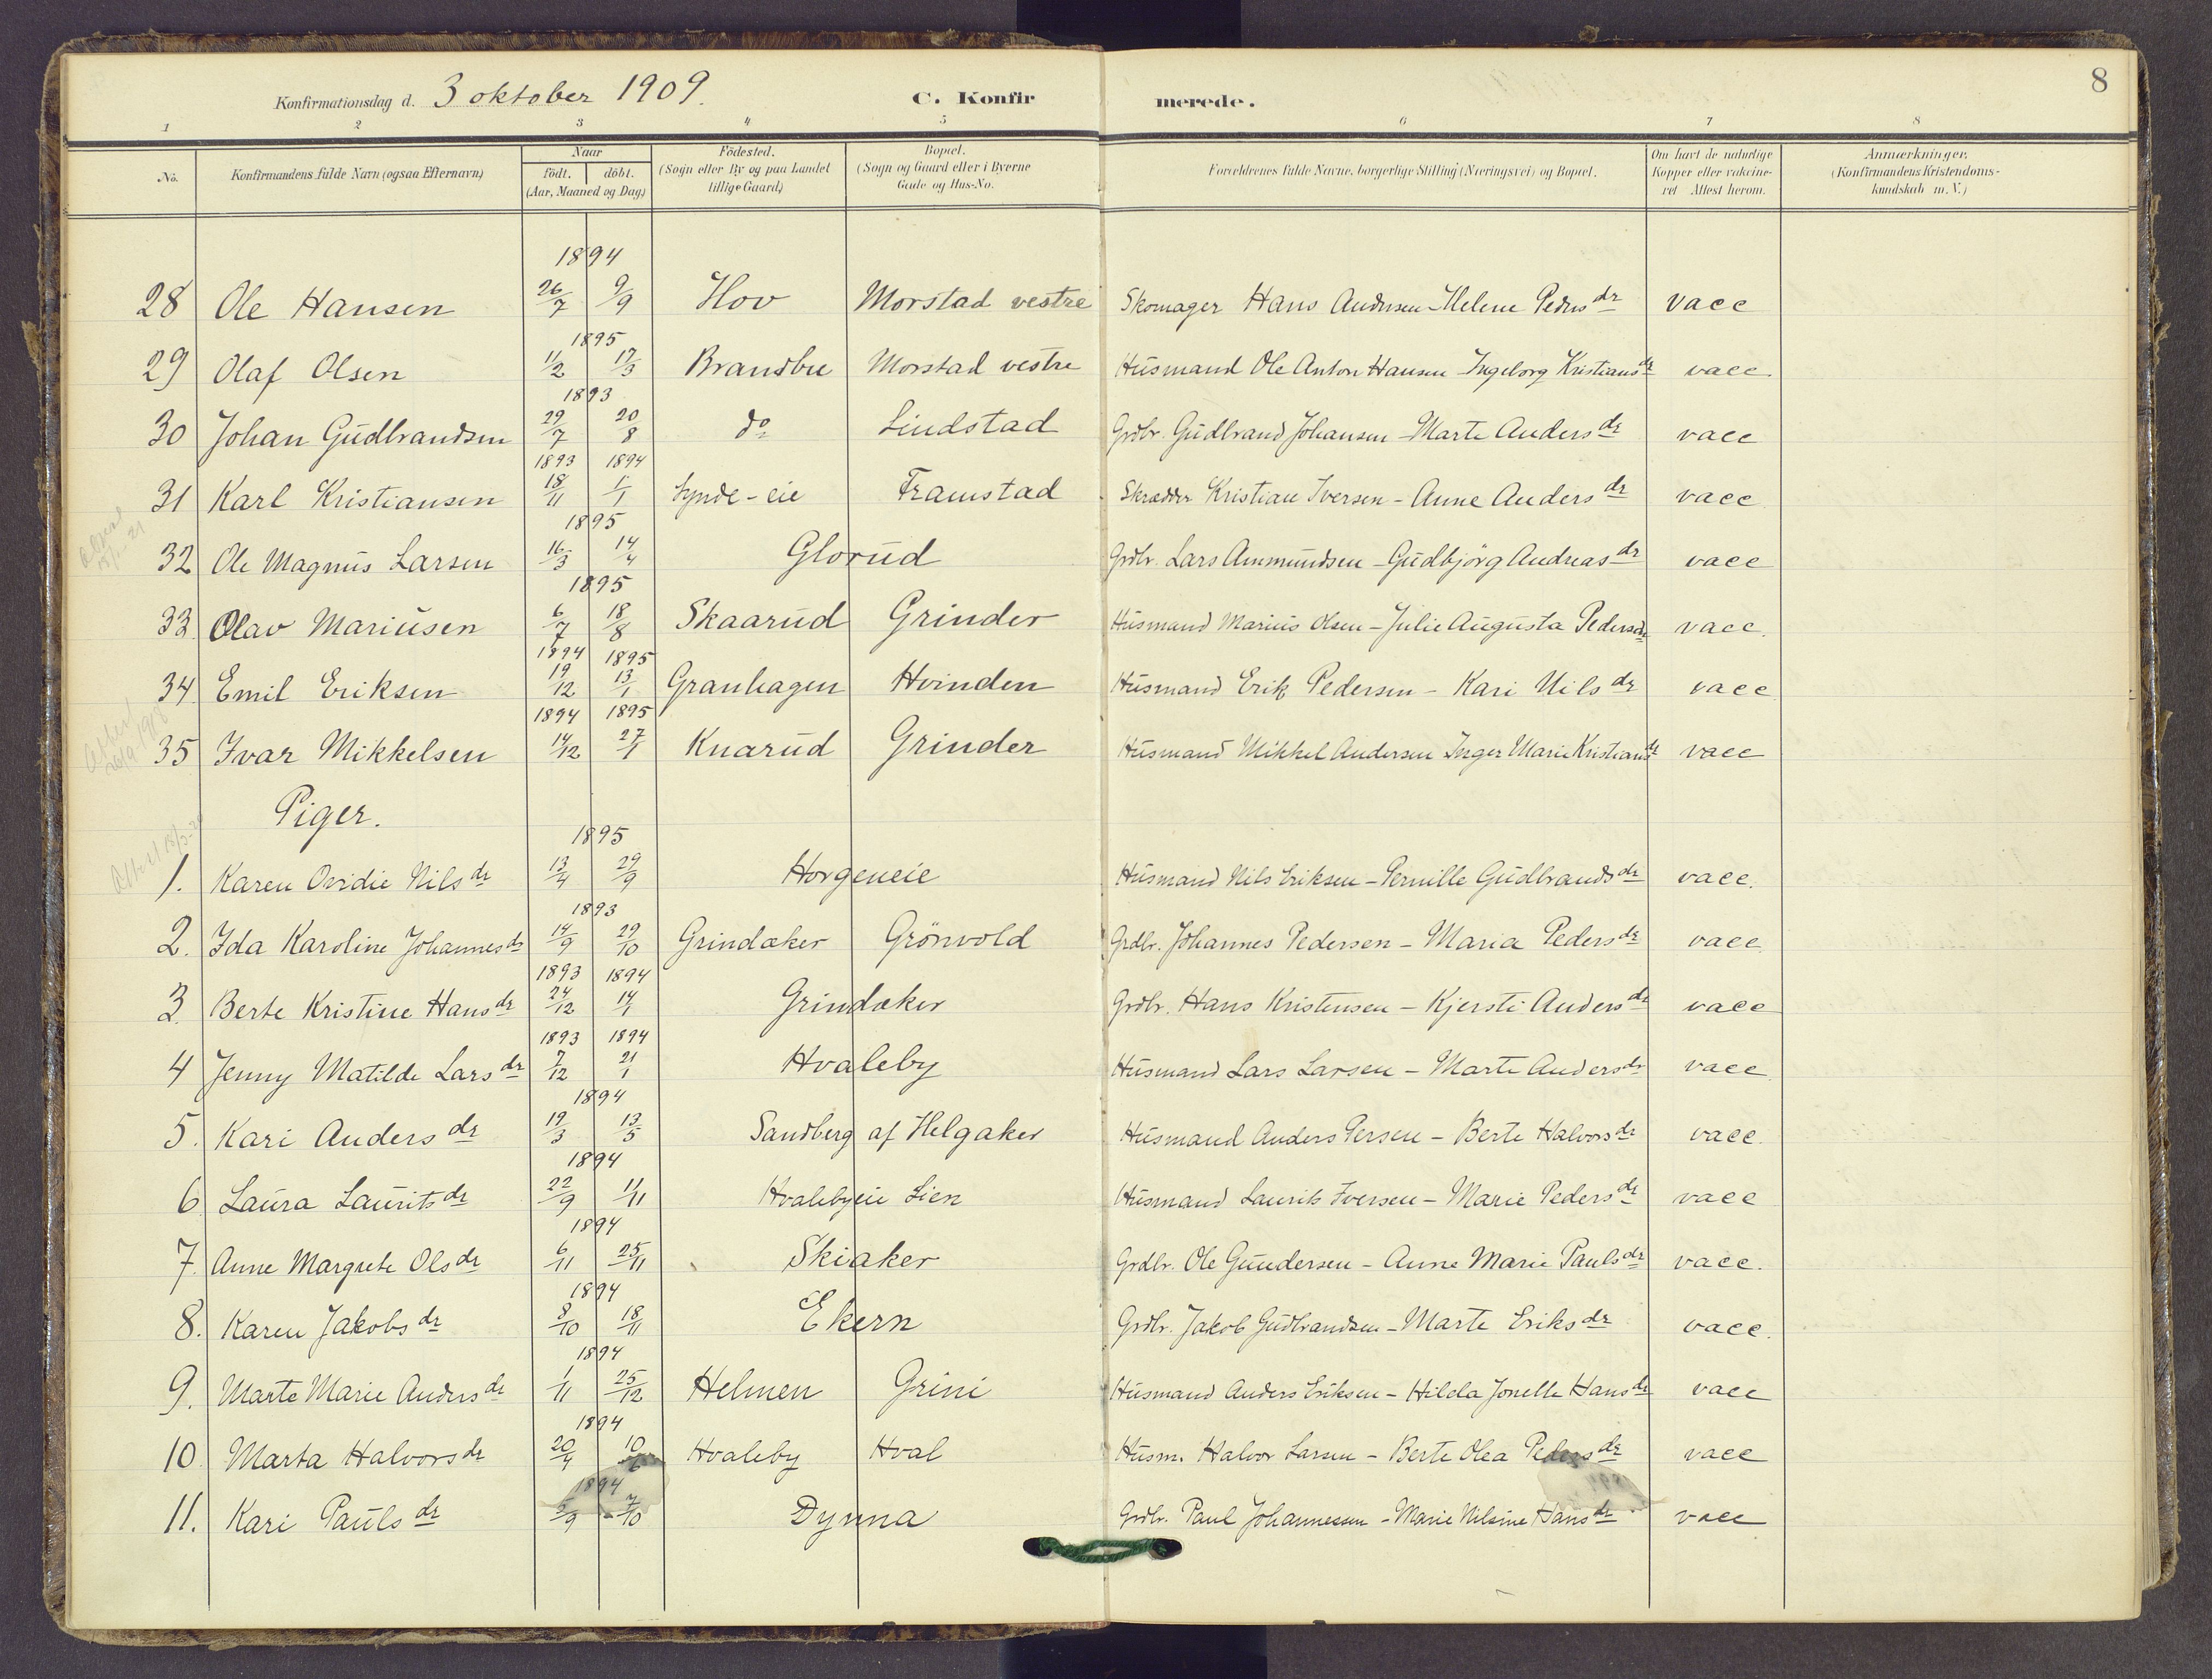 8
Konfirmationsdag d. 3 oktober 1909. C. Konfirmerede.
1 2 3 4 5 6 7 8
No. Konfirmandens fulde Navn (ogsaa Efternavn) Naar födt. döbt. (Aar, Maaned og Dag) Födested. (Sogn eller By og paa Landet tillige Gaard) Bopæl. (Sogn og Gaard eller i Byerne Gade og Hus-No. Forældrenes fulde Navne, borgerlige Stilling (Næringsvei) og Bopæl. Om havt de naturlige Kopper eller vakcineret Attest herom. Anmærkninger. (Konfirmandens Kristendomskundskab m. V.)
1894
28 Ole Hansen 26/7 9/9 Hov Morstad vestre Skomager Hans Andersen - Helene Pedersdr vacc
1895
29 Olaf Olsen 11/2 17/3 Brandbu Morstad vestre Husmand Ole Anton Hansen Ingeborg Kristiansdr vacc.
1893
30 Johan Gudbrandsen 29/7 20/8 do Lindstad Grdbr. Gudbrand Johansen - Marte Andersdr vacc
1893 1894
31 Karl Kristiansen 18/11 1/1 Lynde-eie Framstad Skrædder Kristian Iversen - Anne Andersdr vacc
1895
32 Ole Magnus Larsen 16/3 14/4 Glorud Grdbr. Lars Ammundsen - Gudbjörg Andreasdr vacc
1895
33 Olav Mariusen 6/7 18/8 Skaarud Grinder Husmand Marius Olsen - Julie Augusta Pedersdr vacc.
1894 1895
34 Emil Eriksen 19/12 13/1 Granhagen Hvinden Husmand Erik Pedersen - Kari Nilsdr vacc
1894 1895
35 Ivar Mikkelsen 14/12 27/1 Knarud Grinder Husmand Mikkel Andersen Inger Marie Kristiansdr vacc
Piger.
1895
1. Karen Ovidie Nilsdr 13/4 29/9 Horgeneie Husmand Nils Eriksen - Pernille Gudbrandsdr vacc.
1893
2. Ida Karoline Johannesdr 14/9 29/10 Grindaker Grönvold Grdbr. Johannes Pedersen - Maria Pedersdr vacc
1893 1894
3 Berte Kristine Hansdr 24/12 14/1 Grindaker Grdbr. Hans Kristensen - Kjersti Andersdr vacc
1893 1894
4 Jenny Matilde Larsdr 7/12 21/1 Hvaleby Husmand Lars Larsen - Marte Andersdr vacc
1894
5. Kari Andersdr 19/3 13/5 Sandberg af Helgaker Husmand Anders Persen - Berte Halvorsdr vacc.
1894
6 Laura Lauritsdr 22/9 11/11 Hvalebyeie Lien Husmand Laurits Iversen - Marie Pedersdr vacc
1894
7. Anne Margrete Olsdr 6/11 25/11 Skiaker Grdbr. Ole Gundersen - Anne Marie Paulsdr vacc.
1894
8. Karen Jakobsdr 8/10 18/11 Ekern Grdbr. Jakob Gudbrandsen - Marte Eriksdr vacc.
1894
9. Marte Marie Andersdr 1/11 25/12 Helmen Grini Husmand Anders Eriksen - Hilda Jonette Hansdr vacc
1894
10 Marta Halvorsdr 20/4 10/ Hvaleby Hval Husm. Halvor Larsen - Berte Olea Pedersdr vacc
1894
11. Kari Paulsdr 5/9 7/10 Dynna Grdbr. Paul Johannessen - Marie Nilsine Hansdr vacc